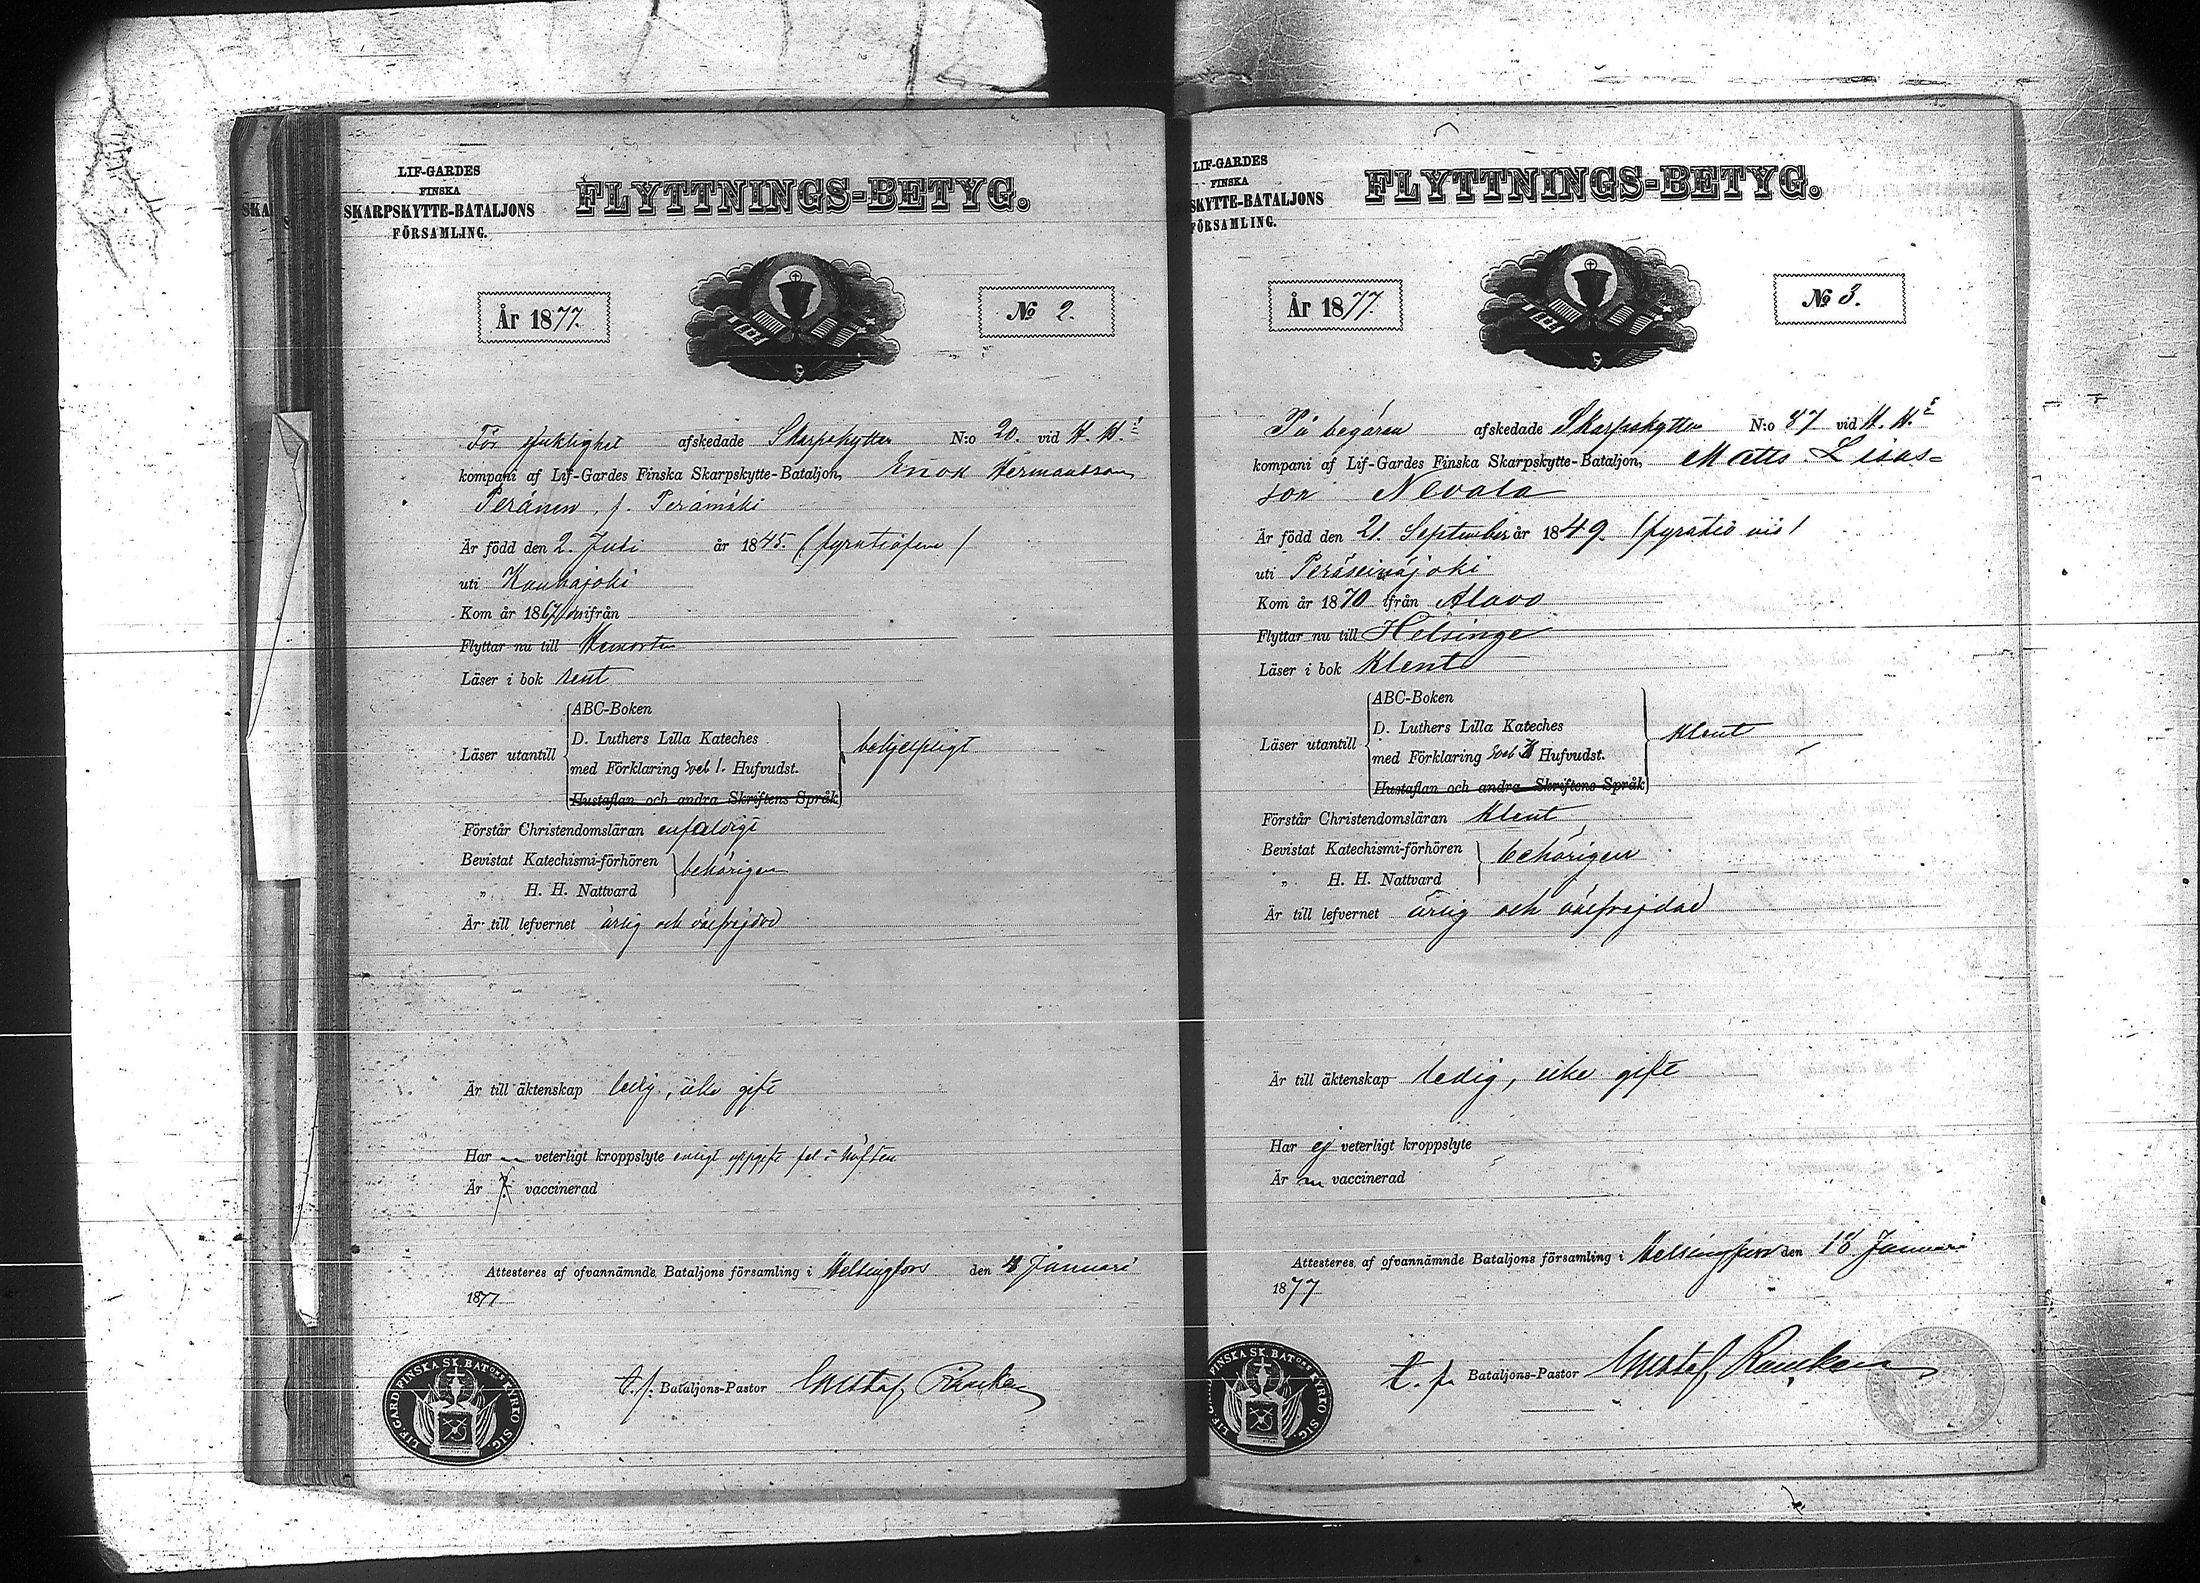 LIF-GARDES
FINSKA
SKARPSKYTTE-BATALJONS
FÖRSAMLING.
FLYTTNINGS-BETYG.
År 1877.
№ 2.
För sjuklighet afskedade Skarpskytten N:o 20. vid H. H:s
kompani af Lif-Gardes Finska Skarpskytte-Bataljon, Enok Hermansson
Peränen, f. Perämäki
Är född den 2. Juli år 1845. (fyratiofem)
uti Kauhajoki
Kom år 1867 ifrån
Flyttar nu till
Läser i bok rent
Läser utantill
ABC-Boken
D. Luthers Lilla Kateches
med Förklaring Hufvudst.
Hustaflan och andra Skriftens Språk
behjelpligt
Förstår Christendomsläran enfaldigt
Bevistat Katechismi-förhören
„ H. H. Nattvard
behörigen
Är till lefvernet ärlig och välfrejdad
Är till äktenskap ledig, icke gift
Har veterligt kroppslyte enligt uppgift fel i höften
Är vaccinerad
Attesteres af ofvannämnde Bataljons församling i Helsingfors den Januari
1877
t. f. Bataljons-Pastor Gustaf Ranken
LIF-GARD. FINSKA SK. BATons KYRKO SIG.
LIF-GARDES
FINSKA
SKYTTE-BATALJONS
FÖRSAMLING.
FLYTTNINGS-BETYG.
År 1877.
№ 3.
På begäran afskedade Skarpskytten N:o 87 vid H. H:s
kompani af Lif-Gardes Finska Skarpskytte-Bataljon, Matts Lisas-
son Nevala
Är född den 21 September år 1849. (fyratio nio)
uti Peräseinäjoki
Kom år 1870 ifrån Alavo
Flyttar nu till Helsinge
Läser i bok klent
Läser utantill
ABC-Boken
D. Luthers Lilla Kateches
med Förklaring Hufvudst.
Hustaflan och andra Skriftens Språk
klent
Förstår Christendomsläran klent
Bevistat Katechismi-förhören
„ H. H. Nattvard
behörigen
Är till lefvernet ärlig och välfrejdad
Är till äktenskap ledig, icke gift
Har ej veterligt kroppslyte
Är vaccinerad
Attesteres af ofvannämnde Bataljons församling i Helsingfors den 18 Januari
1877
t. f. Bataljons-Pastor Gustaf Ranken
FINSKA SK. BATons KYRKO SIG.